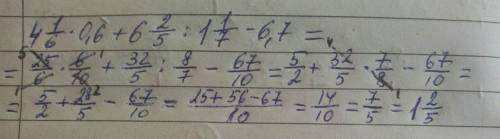 4 1/6 · 0,6 + 6 2/5 : 1 1/7 − 6,7 =
= 25/6 · 6/10 + 32/5 : 8/7 − 67/10 = 5/2 + 32/5 · 7/8 − 67/10 =
= 5/2 + 28/5 − 67/10 = (25 + 56 − 67)/10 = 14/10 = 7/5 = 1 2/5